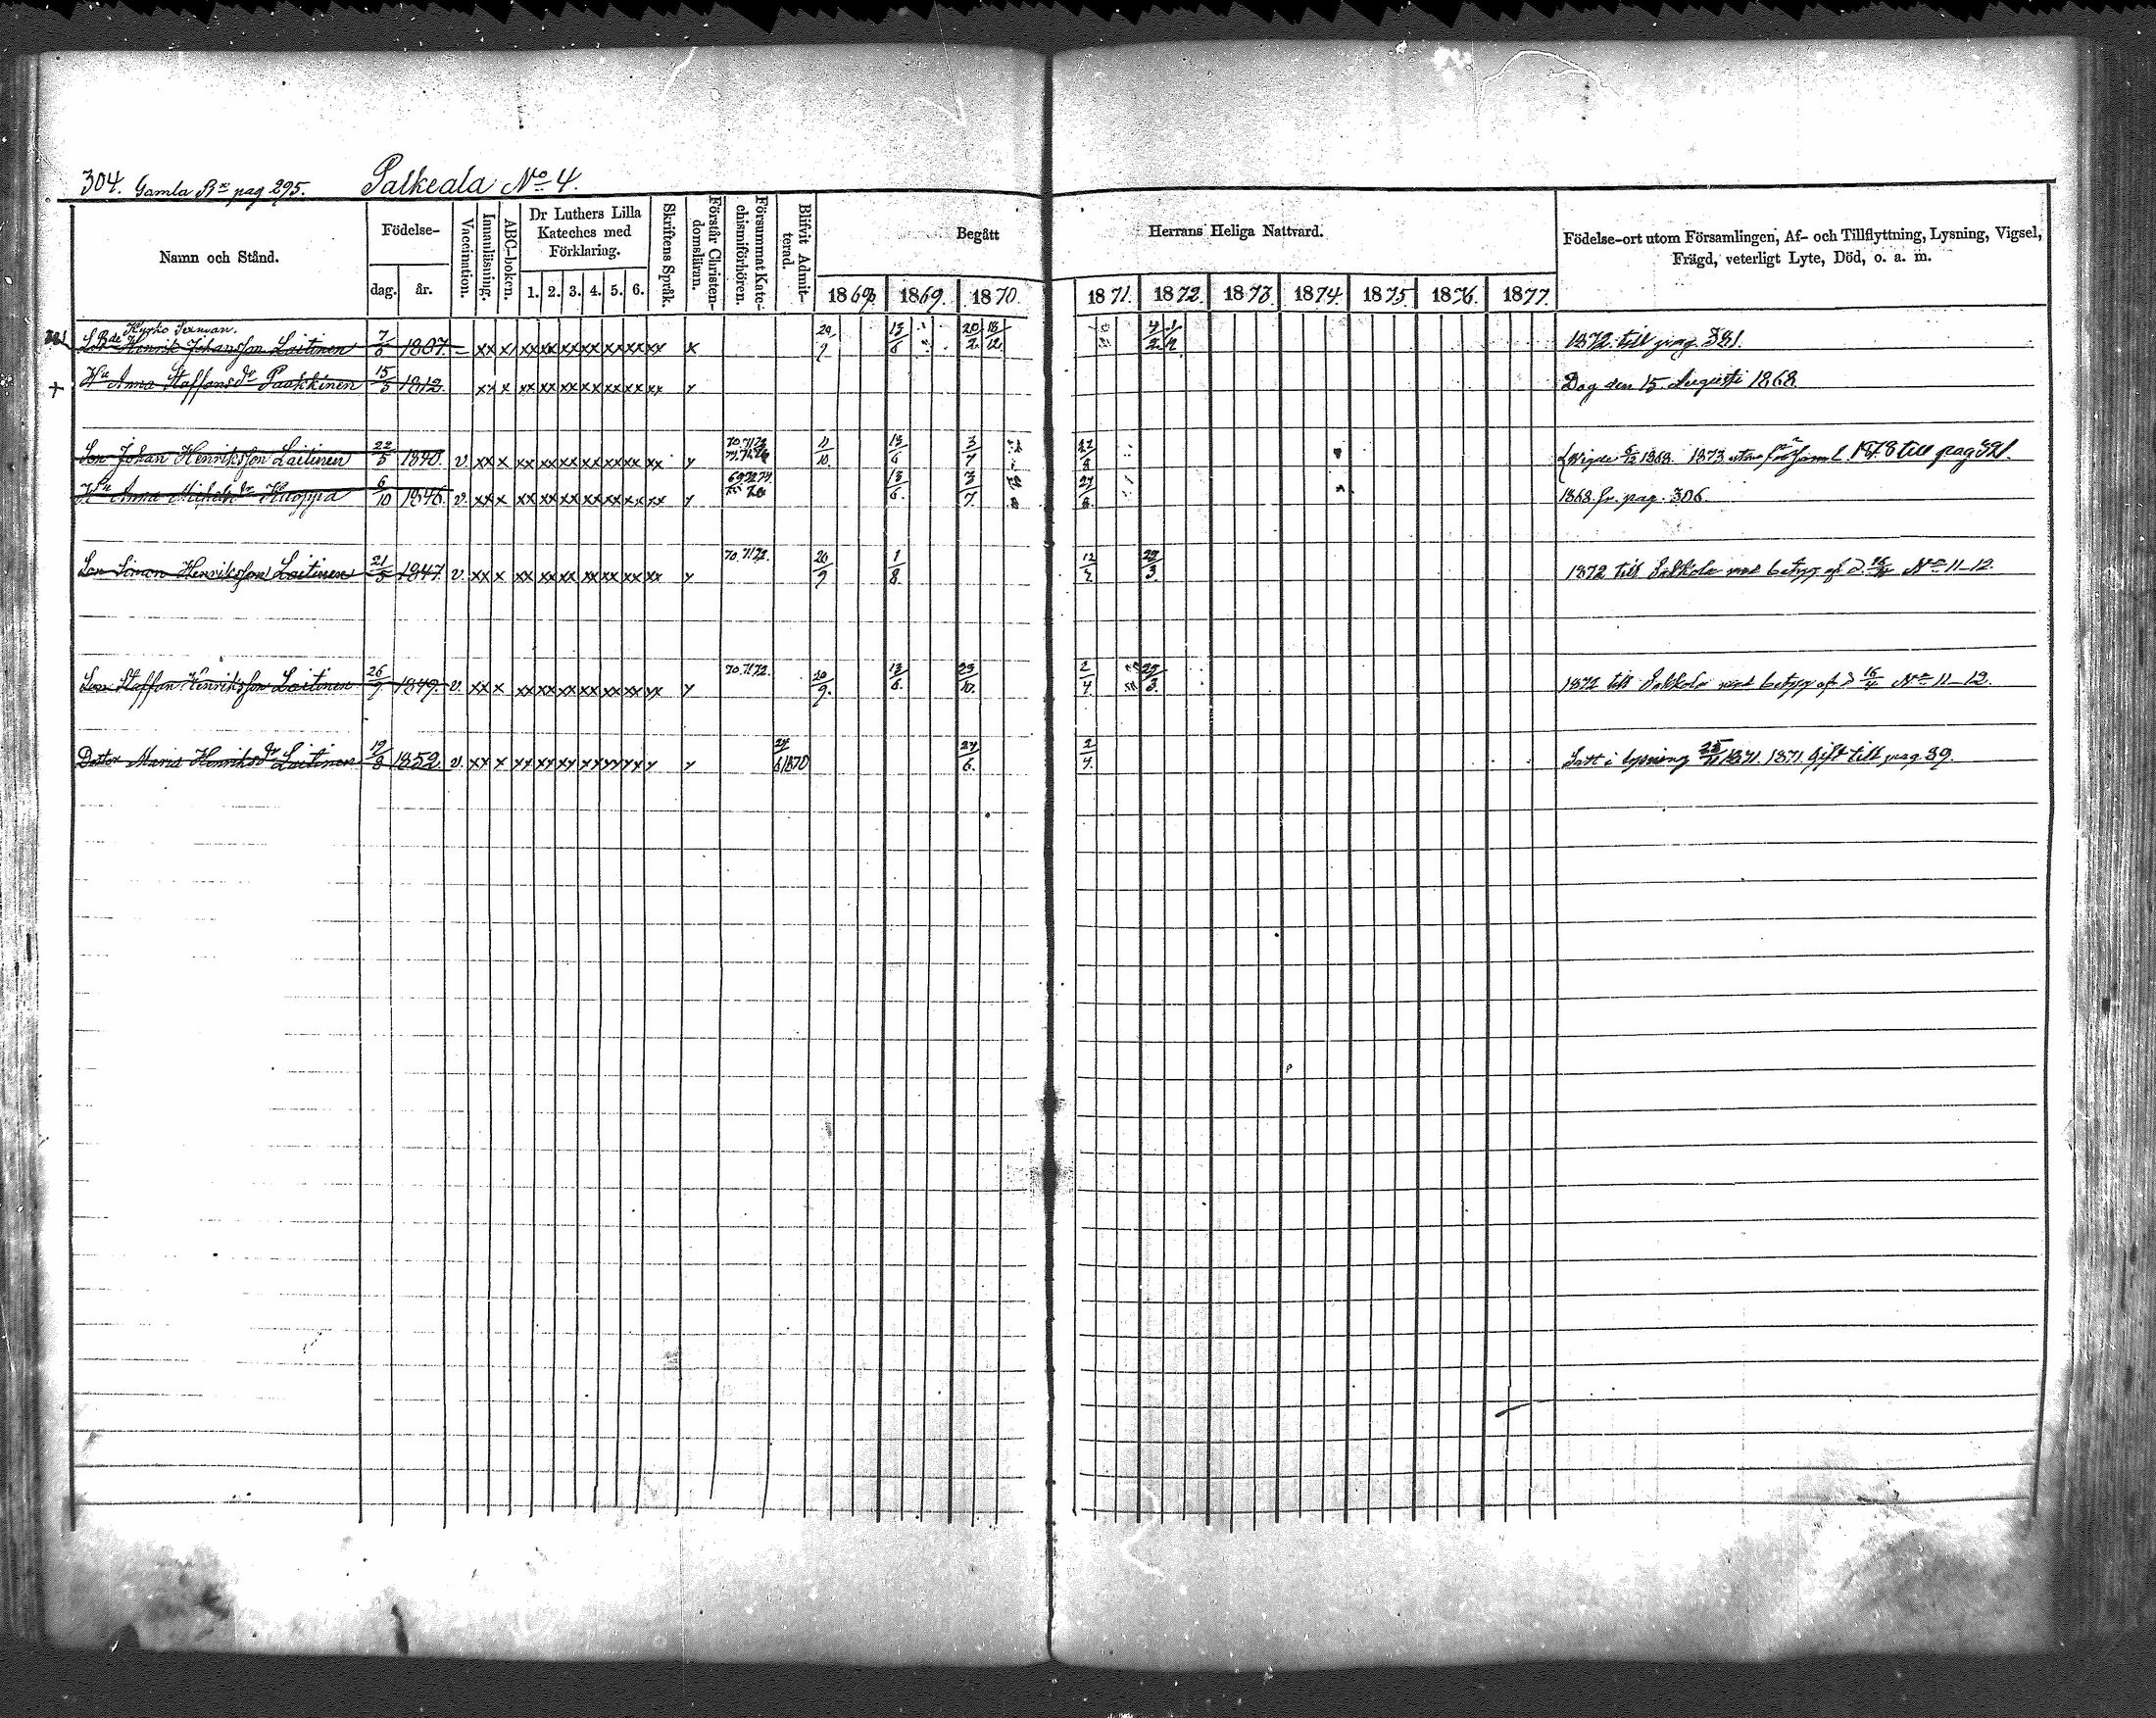 304. Gamla Rn pag 295. Palkeala No 4.
Namn och Stånd.
Födelse-
dag. år.
Vaccination.
Innanläsning.
ABC-boken.
Dr Luthers Lilla
Kateches med
Förklaring.
1. 2. 3. 4. 5. 6.
Skriftens Språk.
Förstår Christen-
domsläran.
Försummat Kate-
chismiförhören.
Blifvit Admit-
terad.
Begått Herrans Heliga Nattvard.
1869. 1870.
1871. 1872. 1873 1874 1875. 1876. 1877.
Födelse-ort utom Församlingen, Af- och Tillflyttning, Lysning, Vigsel,
Frägd, veterligt Lyte, Död, o. a. m.
Kyrko Sexman.
Henrik Johansson Laitinen 1807. – xx x xx xx xx xx xx xx xx x 1872 till pag. 321.
Hu Anna Staffansdr Paakkinen 15/5 1812. xx x xx xx xx xx xx xx xx y Dog den 15 Augusti 1868
Son Johan Henriksson Laitinen 22/5 1840. v xx x xx xx xx xx xx xx xx y 11/10. 13/6 3/7 Vigde 1868. 1873 1878 till pag 321.
Hu Anna Michelsdr Kuoppa 6/10 1846. v. xx x xx xx xx xx xx xx xx y 13/6. 3/7 1868 fr. pag. 306.
Son Simon Henriksson Laitinen 21/5 1847 v. xx x xx xx xx xx xx xx xx y 70.71.72. 20/9 1/8. 1872 till Sakkola med betyg af d. 16/4 No 11–12.
Son Staffan Henriksson Laitinen 26/9 1849. v. xx x xx xx xx xx xx xx xx y 70.71.72. 20/9. 13/6. 23/10. 2/4 25/3. 1872 till Sakkola med betyg af d 16/4 No 11–12.
Dotter Maria Henriksdr Laitinen 19/8 1852. v. xx x xx xx xx xx xx xx y y 24/6 1870 24/6. 2/4. Satt i lysning 1871. 1871 Gift till pag. 39.